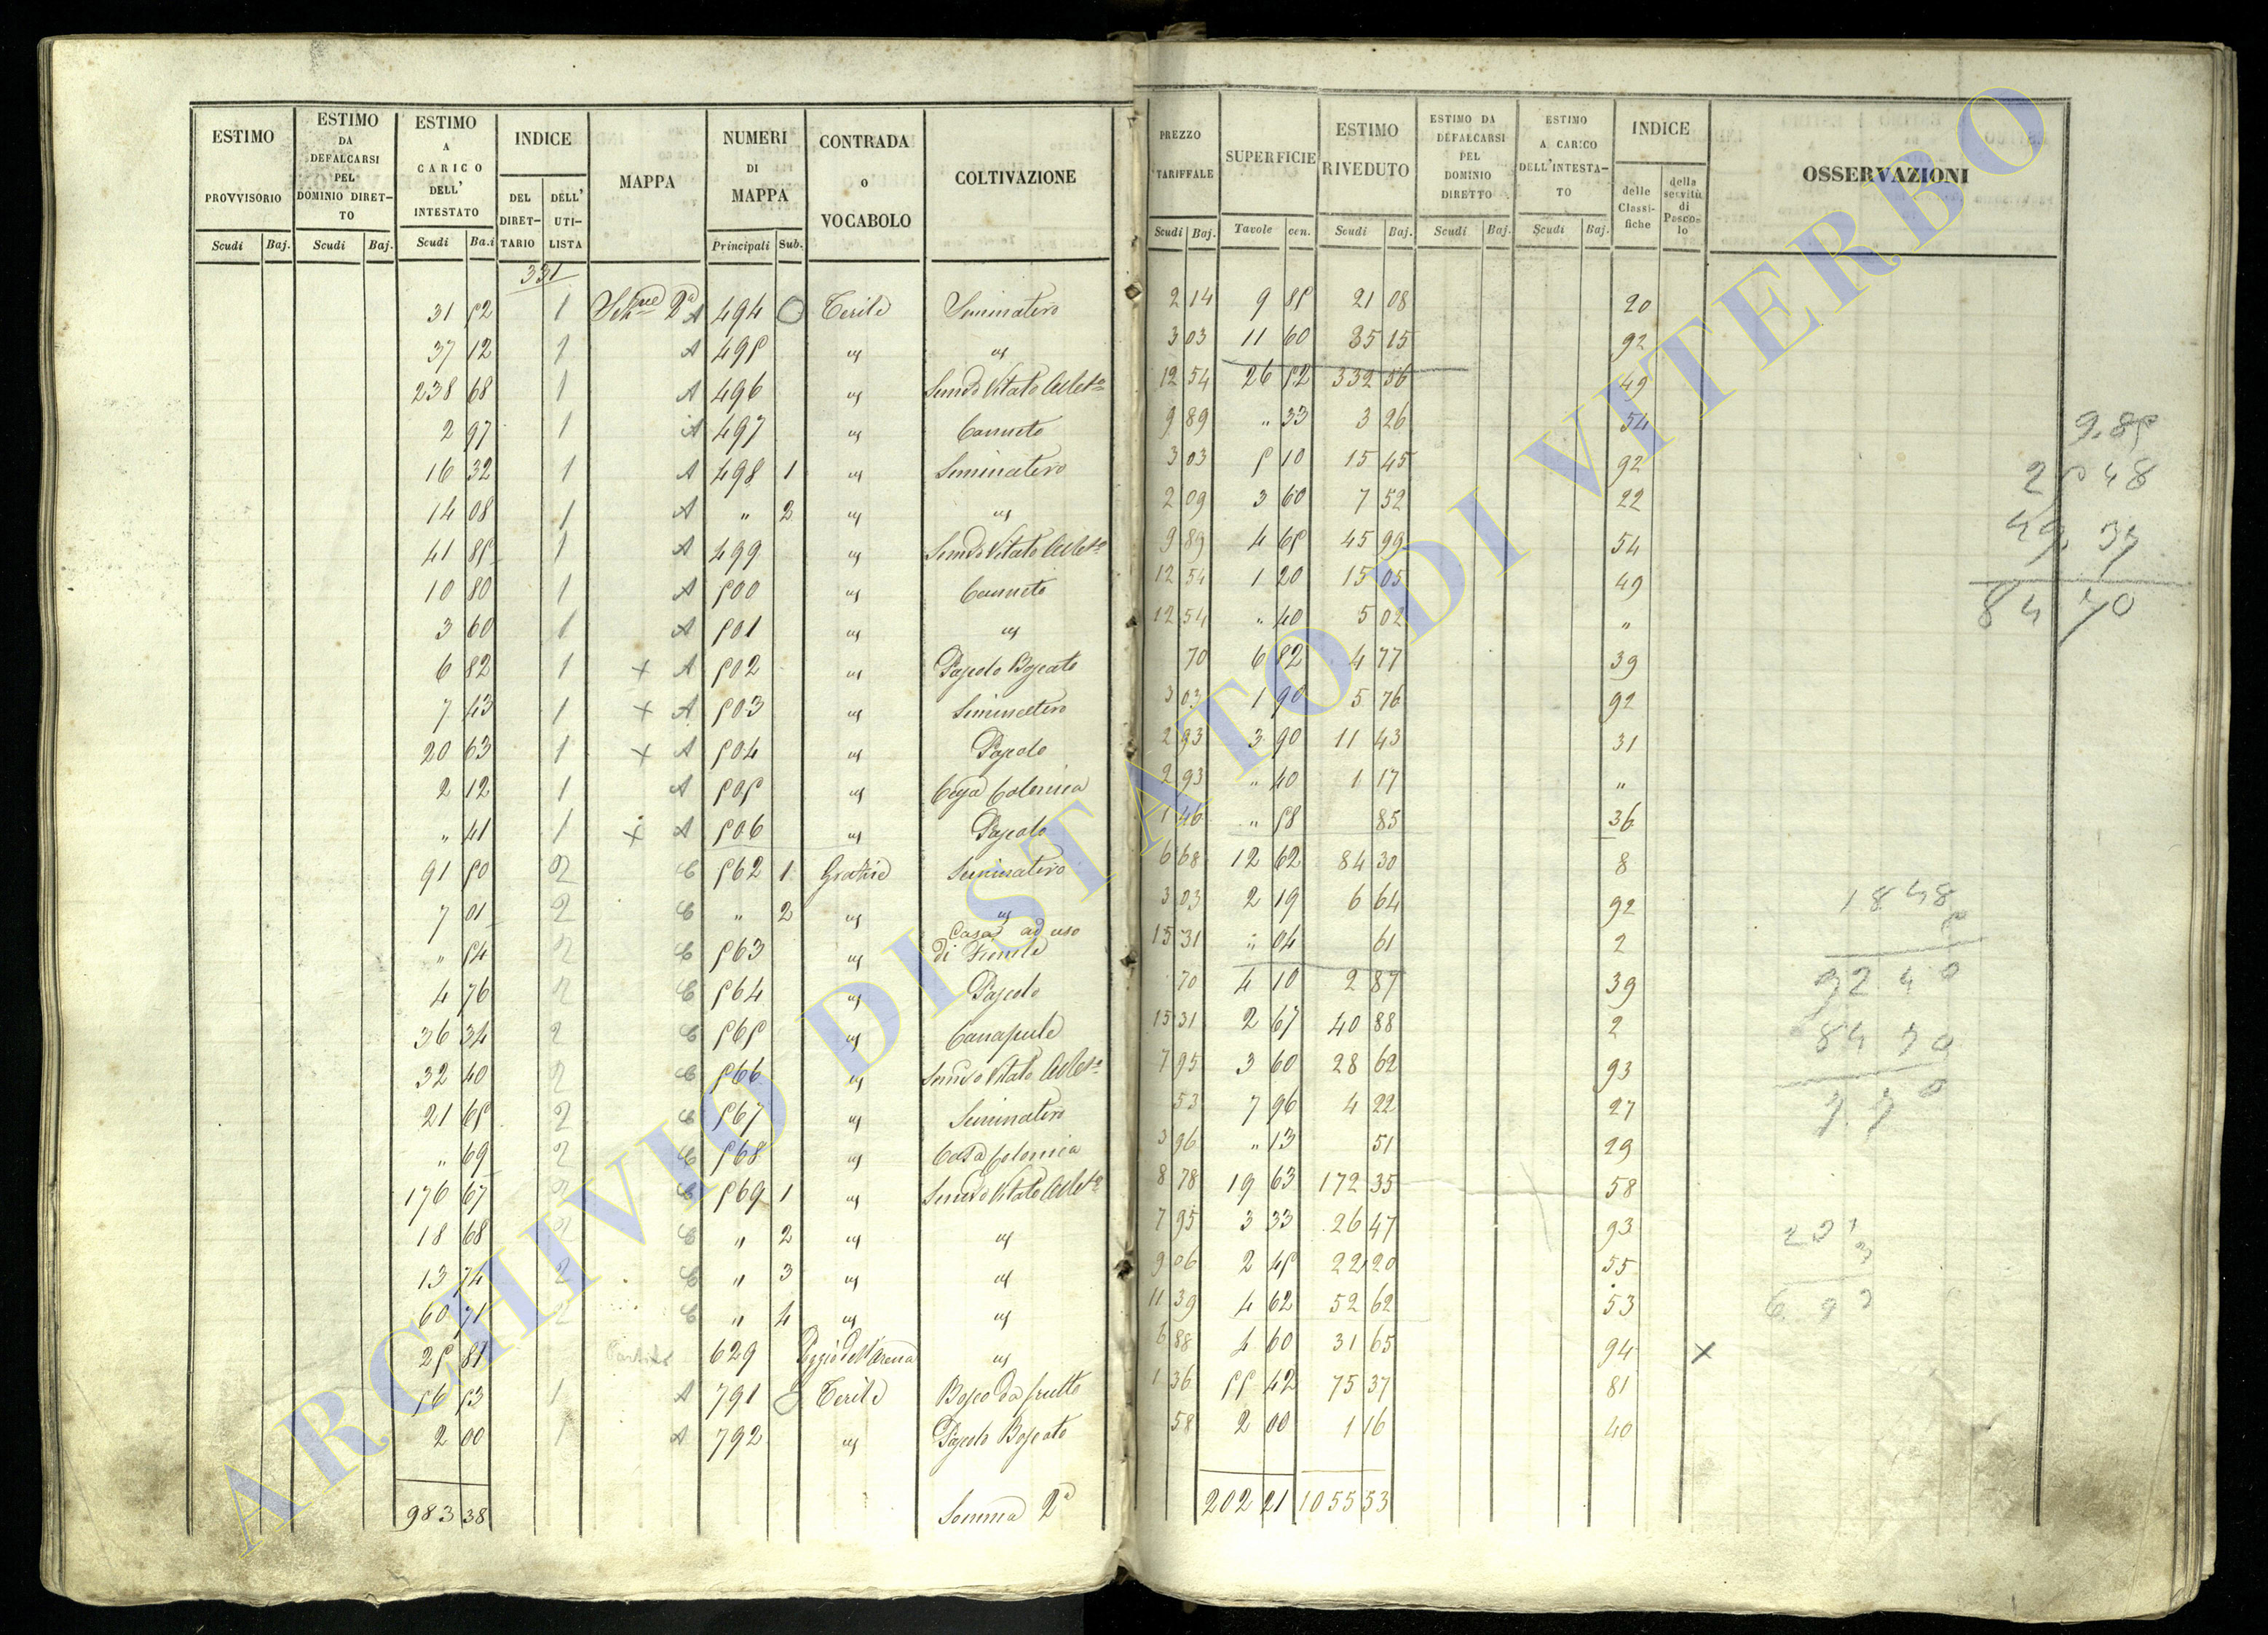 ESTIMO PROVVISORIO Scudi Baj.
ESTIMO DA DEFALCARSI PEL DOMINIO DIRET-TO Scudi Baj.
ESTIMO A CARICO DELL' INTESTATO Scudi Ba.i
INDICE DEL DIRET-TARIO DELL' UTI-LISTA
MAPPA
NUMERI DI MAPPA Principali Sub.
CONTRADA o VOCABOLO
COLTIVAZIONE
PREZZO TARIFFALE Scudi Baj.
SUPERFICIE Tavole cen.
ESTIMO RIVEDUTO Scudi Baj.
ESTIMO DA DEFALCARSI PEL DOMINIO DIRETTO Scudi Baj.
ESTIMO A CARICO DELL'INTESTA-TO Scudi Baj.
INDICE delle Classi-fiche della servitù di Pasco-lo
OSSERVAZIONI
331
31 52 1 2ª A 494 Terile Seminativo 2 14 9 85 21 08 20
37 12 1 A 495 " " 3 03 11 60 35 15 92
238 68 1 A 496 " Semvo Vitato Albto 12 54 26 52 332 56 49
2 97 1 A 497 " Canneto 9 89 " 33 3 26 54
16 32 1 A 498 1 " Seminativo 3 03 5 10 15 45 92
14 08 1 A " 2 " " 2 09 3 60 7 52 22
41 85 1 A 499 " Semvo Vitato Albto 9 89 4 65 45 99 54
10 80 1 A 500 " Canneto 12 54 1 20 15 05 49
3 60 1 A 501 " " 12 54 " 40 5 02 "
6 82 1 + A 502 " Pascolo Boscato 70 6 82 4 77 39
7 43 1 + A 503 " Seminativo 3 03 1 90 5 76 92
20 63 1 + A 504 " Pascolo 2 93 3 90 11 43 31
2 12 1 A 505 " Casa Colonica 2 93 " 40 1 17 "
" 41 1 + A 506 " Pascolo 1 46 " 58 85 36
91 50 2 C 562 1 Grotticè Seminativo 6 68 12 62 84 30 8
7 01 2 C " 2 " " 3 03 2 19 6 64 92
" 54 2 C 563 " Casa ad uso di Fienile 15 31 " 04 61 2
4 76 2 C 564 " Pascolo 70 4 10 2 87 39
36 34 2 C 565 " Canapule 15 31 2 67 40 88 2
32 40 2 C 566 " Semvo Vitato Albto 7 95 3 60 28 62 93
21 65 2 C 567 " Seminativo 53 7 96 4 22 27
" 69 2 C 568 " Casa Colonica 3 96 " 13 51 29
176 67 2 C 569 1 " Semvo Vitato Albto 8 78 19 63 172 35 58
18 68 2 C " 2 " " 7 95 3 33 26 47 93
13 74 2 C " 3 " " 9 06 2 45 22 20 55
60 71 2 C " 4 " " 11 39 4 62 52 62 53
25 81 629 Poggio dell'Arena " 6 88 4 60 31 65 94 x
56 53 1 A 791 Terile Bosco da frutto 1 36 55 42 75 37 81
2 00 1 A 792 " Pascolo Boscato 58 2 00 1 16 40
983 38 Somma 2ª 202 21 1055 53
9.85
25 48
84 70
1848
92 40
84 70
7 70
ARCHIVIO DI STATO DI VITERBO